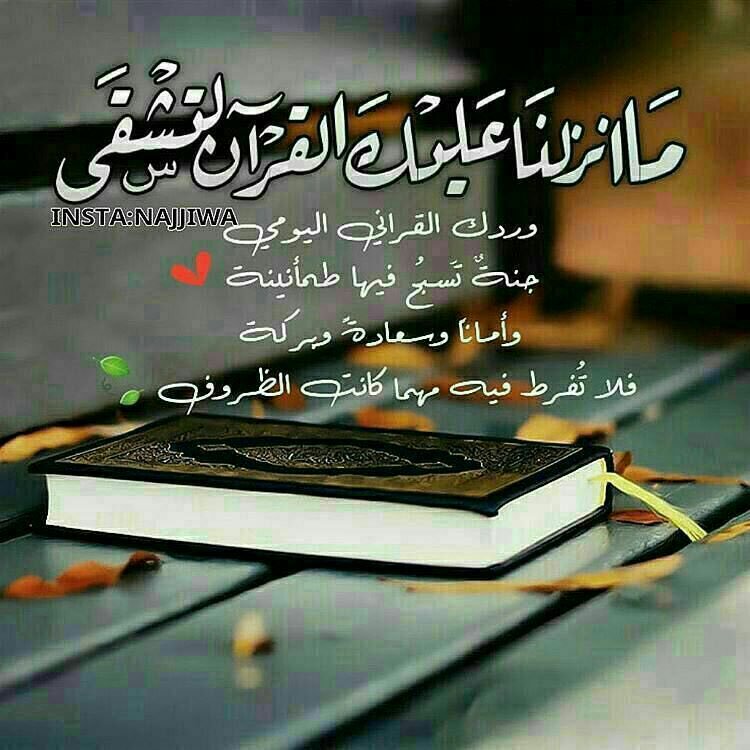 مَا انزلنَا عَليْكَ القرْآن لتشْقَى
INSTA:NAJJIWA
وردك القراني اليومي
جنةٌ تَسبحُ فيها طمأنينة
وأمانا وسعادةً وبركة
فلا تُفرط فيه مهما كانت الظروف